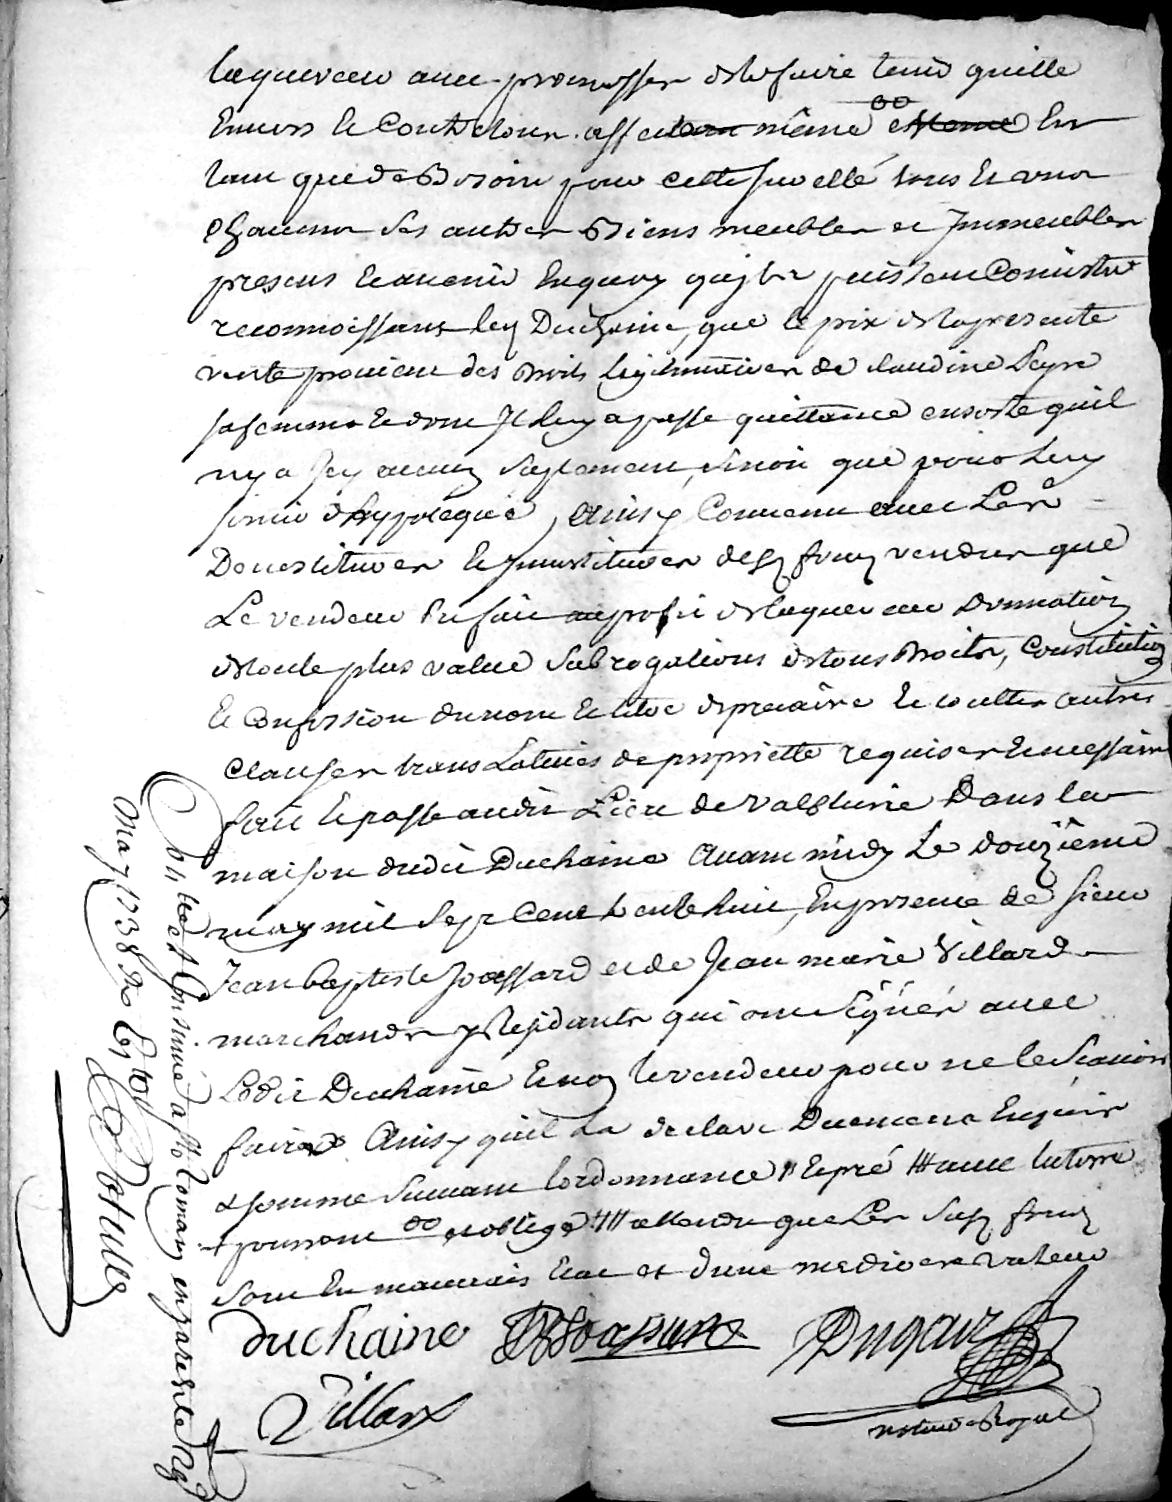 laquereur avec promesse de le faire tenir quitte
Envers le Cont dour. affectant même oo et tenue En
tant que de Besoin pour cette seurelté tous Et un
chacuns ses autres Biens meubles et Jmmeubles
presens Et avenir En quoy quils puissent Consister
reconnoissant led Duchaine, que le prix de la presente
vente provient des droits legitimaires de claudine Peyre
sa femme Et dont Jl luy a passe quittance en sorte quil
ny a Jcy aucun suplement, sinon que pour luy
servir d'hypoteque, Ainsy Convenu avec les
Devestitures Et Jnvestitures desd fonds vendus que
Le vendeur En fait au profit de laquereur Donnation
de toute plus value subrogations de tous Droits, Constitution
Et Confession du nom Et titre de precaire Et touttes autres
clauses translatives de propriette requises Et necessaires
fait Et passe audit Lieu de Valsturie Dans la
maison dudit Duchaine Avant midy Le douzième
may mil sept Cent trente huit, En presence de sieur
Jean baptiste Joassard et de Jean marie Villard
marchands y Residants qui ont signés avec
Ledit Duchaine Et non le vendeur pour ne le scavoir
faire Ainsy quil La declaré Duement Enquis
& somme suivant lordonnance # Et pré ## avec la terre
+ pourront oo et oblige ### attendu que Les susd fonds
sont En mauvais Etat et d'une mediocre valeur
Duchaine Joassard Dugaiz
Villard
notaire Royal
Conterolé et Insinué a St Romain en parerite
May 1738